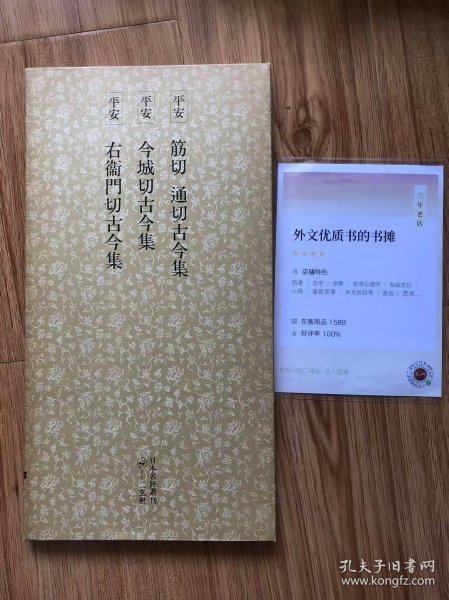 平安
筋切 通切古今集
平安
今城切古今集
平安
右衞門切古今集
日本名跡叢刊
二玄社
三年老店
外文优质书的书摊
店铺特色
历史 | 文学 | 宗教 | 哲学心理学 | 社会文化 |
小说 | 语言文字 | 外文古旧书 | 政治 | 艺术...
在售商品 1589
好评率 100%
长按识别二维码 进入店铺
孔夫子旧书网
www.kongfz.com